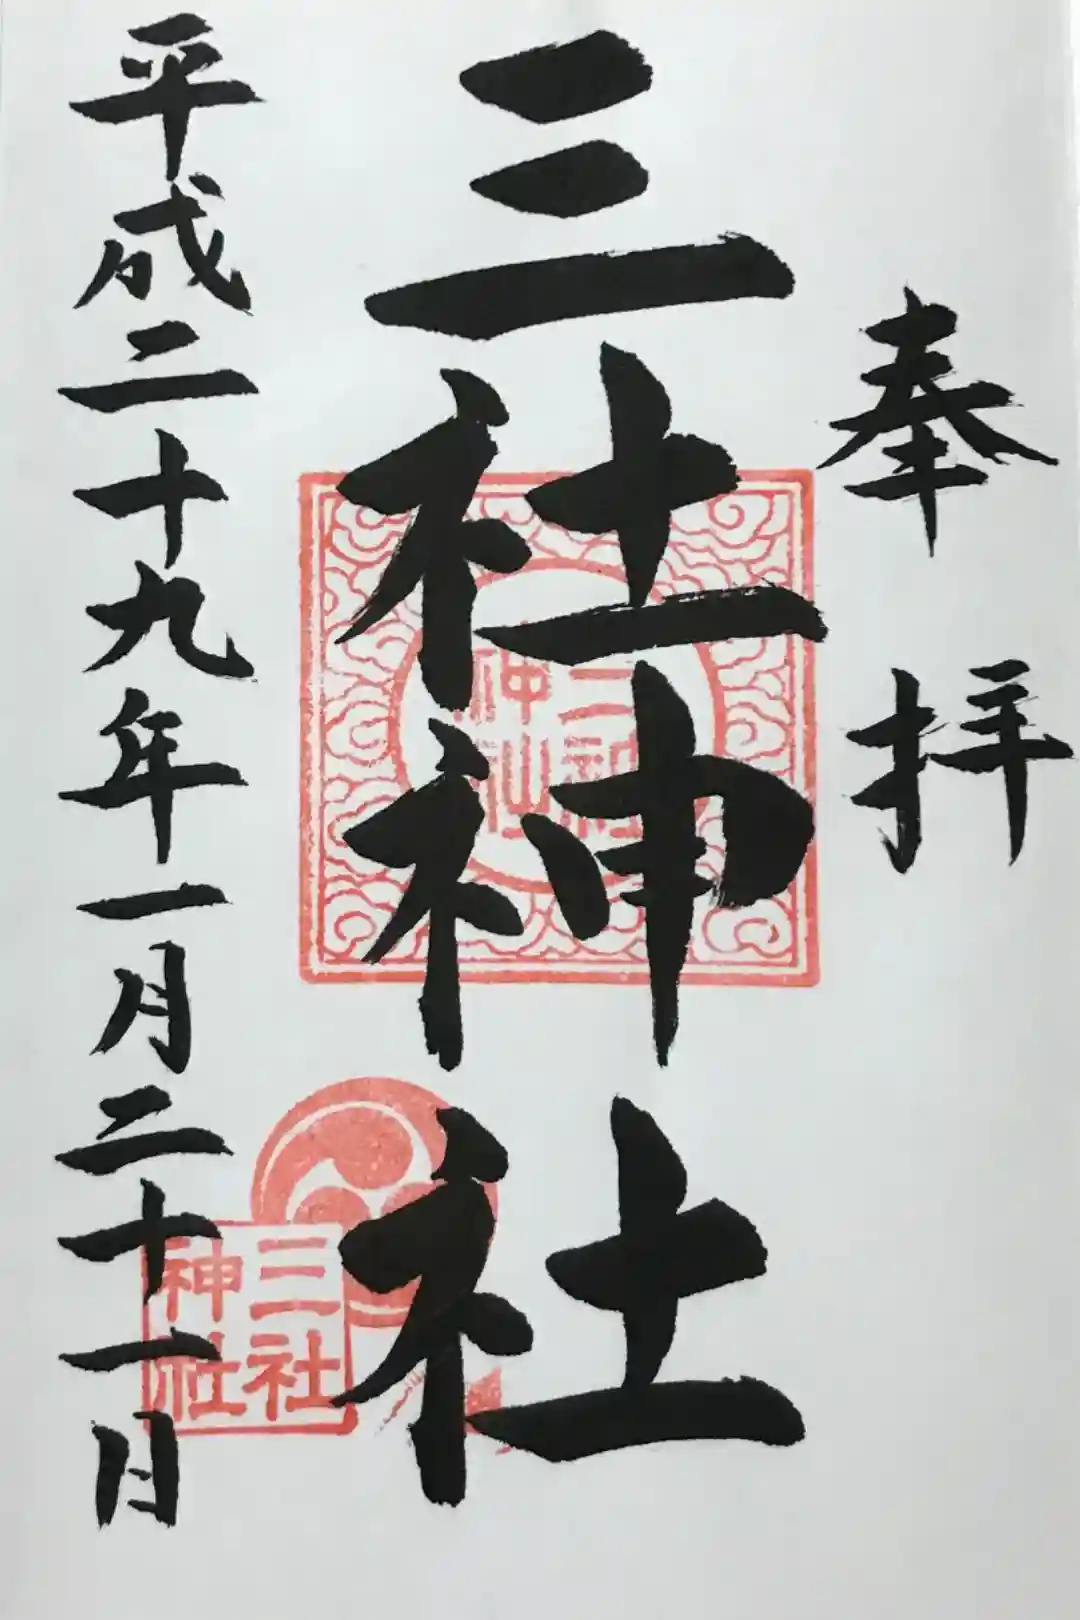 奉拝
三社神社
平成二十九年一月二十一日
三社
神社
三社
神社